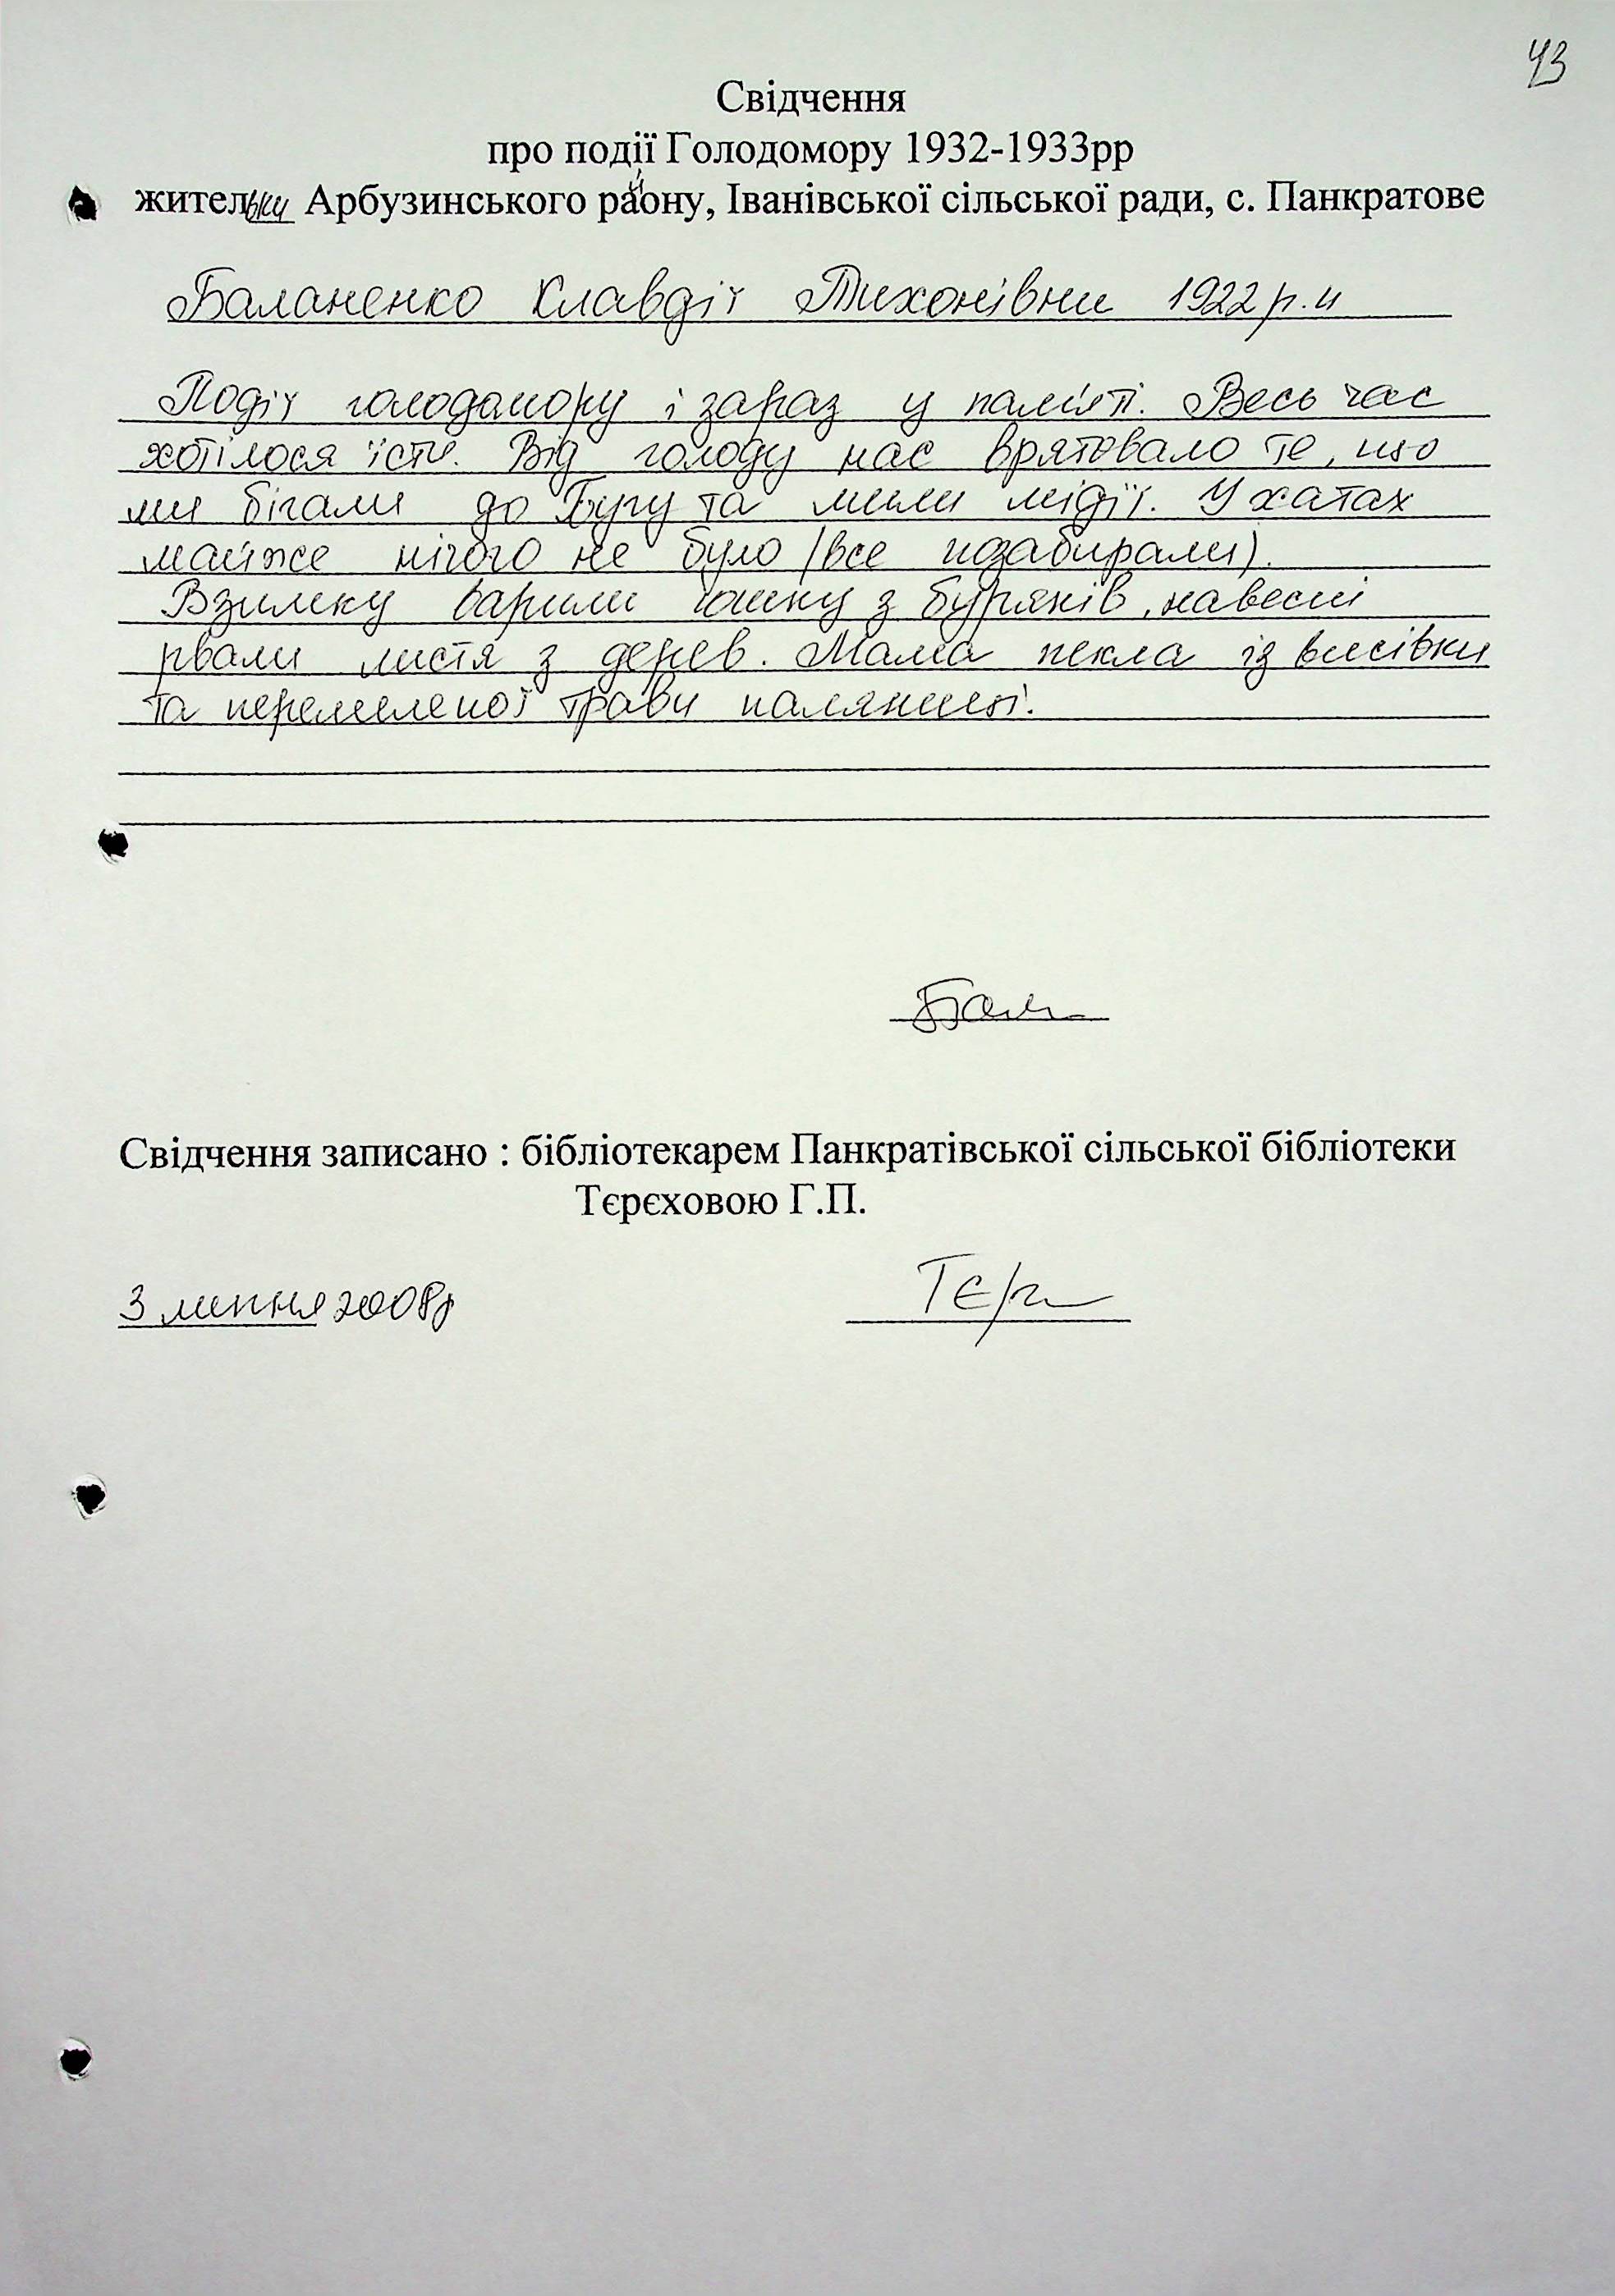 43
Свідчення
про події Голодомору 1932-1933рр
жительки Арбузинського району, Іванівської сільської ради, с. Панкратове
Баланенко Клавдії Тихонівни 1922 р.н
Події голодомору і зараз у пам'яті. Весь час
хотілося їсти. Від голоду нас врятовало те, що
ми бігали до Бугу та мили мідії. У хатах
майже нічого не було (все позабирали).
Взимку варили юшку з буряків, навесні
рвали листя з дерев. Мама пекла із висівки
та перемеленої трави паляниці.
Бала
Свідчення записано : бібліотекарем Панкратівської сільської бібліотеки
Тєрєховою Г.П.
3 липня 2008р
Тєр